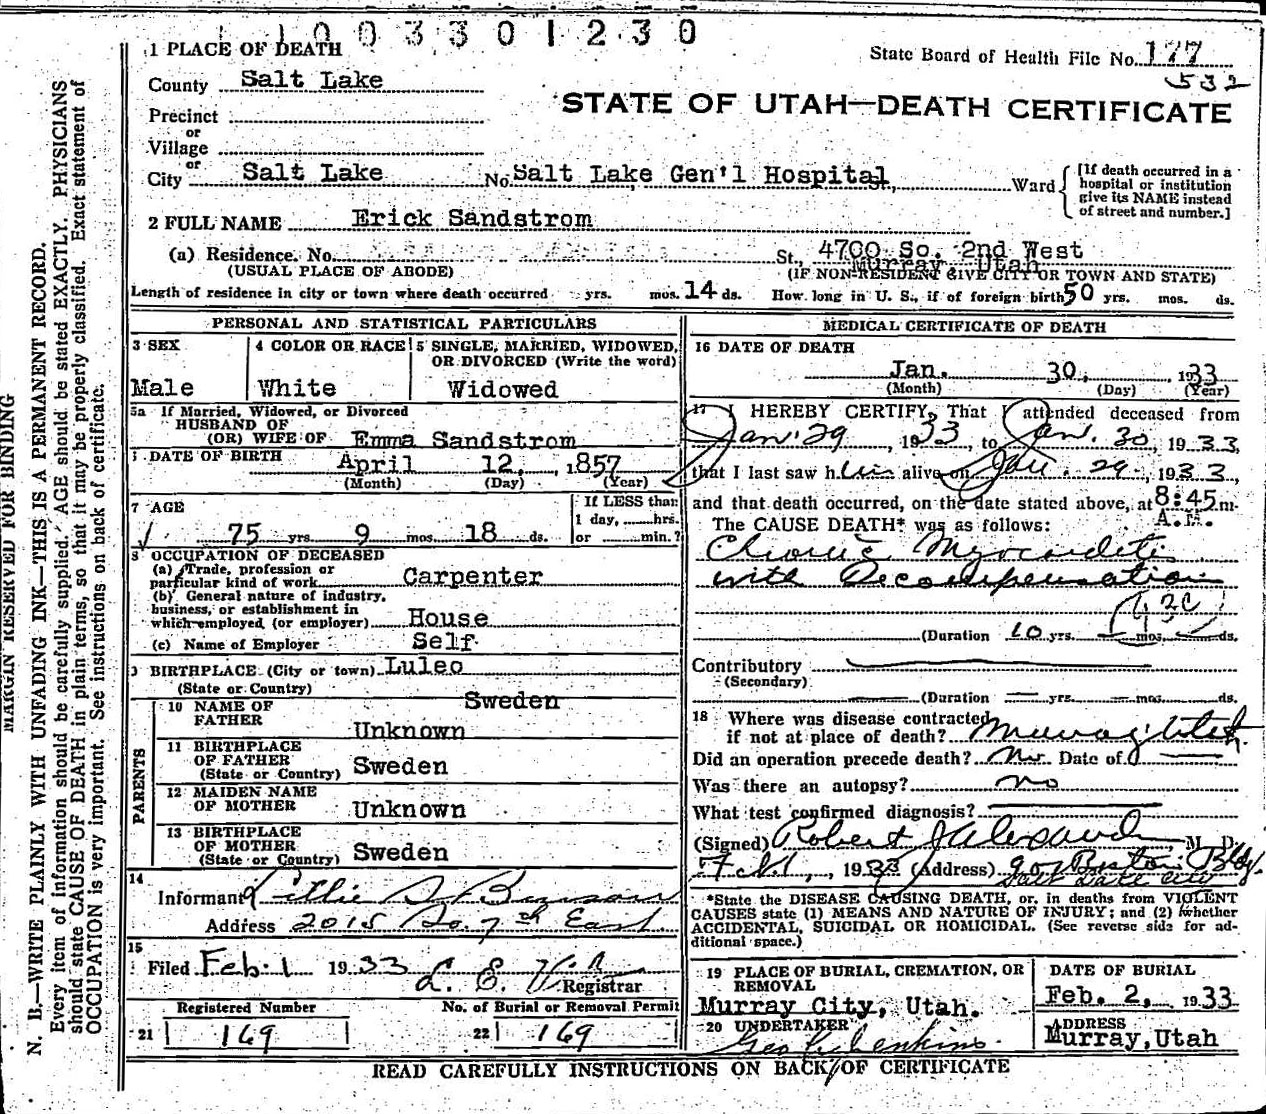 1003301230
1 PLACE OF DEATH
State Board of Health File No. 177
532
County Salt Lake
STATE OF UTAH—DEATH CERTIFICATE
Precinct
or
Village
or
City Salt Lake No. Salt Lake Gen'l Hospital, Ward
[If death occurred in a
hospital or institution
give its NAME instead
of street and number.]
2 FULL NAME Erick Sandstrom
(a) Residence. No. St., 4700 So. 2nd West
Murray, Utah
(USUAL PLACE OF ABODE) (IF NON-RESIDENT GIVE CITY OR TOWN AND STATE)
Length of residence in city or town where death occurred yrs. mos. 14 ds. How long in U. S., if of foreign birth 50 yrs. mos. ds.
PERSONAL AND STATISTICAL PARTICULARS
3 SEX
Male
4 COLOR OR RACE
White
5 SINGLE, MARRIED, WIDOWED,
OR DIVORCED (Write the word)
Widowed
5a If Married, Widowed, or Divorced
HUSBAND OF
(OR) WIFE OF Emma Sandstrom
DATE OF BIRTH April 12, 1857
(Month) (Day) (Year)
7 AGE
75 yrs. 9 mos. 18 ds.
If LESS than
1 day, hrs.
or min.?
8 OCCUPATION OF DECEASED
(a) Trade, profession or
particular kind of work Carpenter
(b) General nature of industry,
business, or establishment in
which employed (or employer) House
(c) Name of Employer Self
BIRTHPLACE (City or town) Luleo
(State or Country) Sweden
PARENTS
10 NAME OF
FATHER Unknown
11 BIRTHPLACE
OF FATHER
(State or Country) Sweden
12 MAIDEN NAME
OF MOTHER Unknown
13 BIRTHPLACE
OF MOTHER
(State or Country) Sweden
14
Informant Lillie S.
Address 2015 So. 7th East
15
Filed Feb. 1 1933 L. E.
Registrar
Registered Number
21 169
No. of Burial or Removal Permit
22 169
MEDICAL CERTIFICATE OF DEATH
16 DATE OF DEATH
Jan. 30, 1933
(Month) (Day) (Year)
17 I HEREBY CERTIFY, That I attended deceased from
Jan. 29, 1933 to Jan. 30, 1933,
that I last saw him alive on Jan. 29, 1933,
and that death occurred, on the date stated above, at 8:45 m.
A.M.
The CAUSE DEATH* was as follows:
Chronic Myocarditis
with Decompensation
(Duration 10 yrs. mos. ds.
Contributory
(Secondary)
(Duration yrs. mos. ds.
18 Where was disease contracted
if not at place of death? Murray, Utah
Did an operation precede death? No Date of
Was there an autopsy? no
What test confirmed diagnosis?
(Signed) Robert J Alexander M. D.
Feb 1, 1933 (Address) 907 Boston Bldg.
Salt Lake City
*State the DISEASE CAUSING DEATH, or, in deaths from VIOLENT
CAUSES state (1) MEANS AND NATURE OF INJURY; and (2) whether
ACCIDENTAL, SUICIDAL OR HOMICIDAL. (See reverse side for ad-
ditional space.)
19 PLACE OF BURIAL, CREMATION, OR
REMOVAL
Murray City, Utah.
DATE OF BURIAL
Feb. 2, 1933
20 UNDERTAKER
Geo Jenkins.
ADDRESS
Murray, Utah
READ CAREFULLY INSTRUCTIONS ON BACK OF CERTIFICATE
MARGIN RESERVED FOR BINDING
N. B.—WRITE PLAINLY WITH UNFADING INK—THIS IS A PERMANENT RECORD.
Every item of information should be carefully supplied. AGE should be stated EXACTLY. PHYSICIANS
should state CAUSE OF DEATH in plain terms, so that it may be properly classified. Exact statement of
OCCUPATION is very important. See instructions on back of certificate.